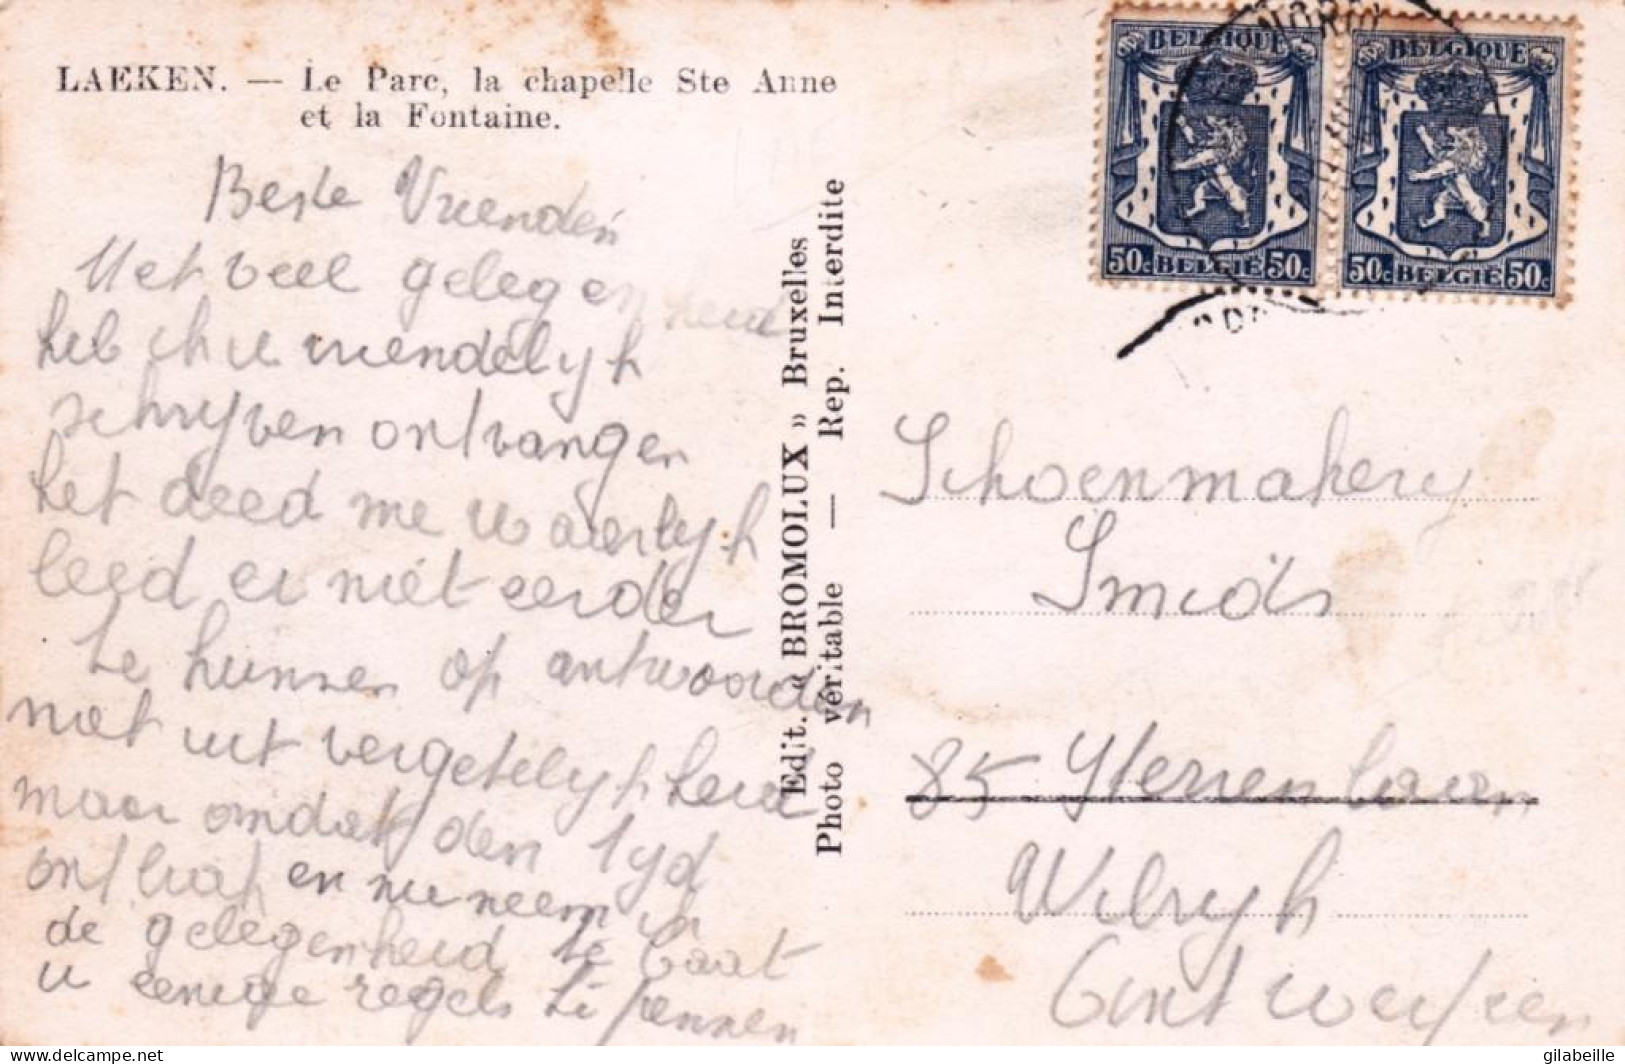 LAEKEN. — Le Parc, la chapelle Ste Anne
et la Fontaine.
Beste Vrienden
Met veel gelegenheid
heb ik u vriendelijk
schrijven ontvangen
het deed me waerlijk
leed er niet eerder
te kunnen op antwoorden
niet uit vergetelijkheid
maar omdat den tijd
ontbrak en nu neem ik
de gelegenheid te baat
u eenige regels te pennen
Edit. « BROMOLUX » Bruxelles
Photo véritable — Rep. Interdite
BELGIQUE
50c BELGIË 50c
BELGIQUE
50c BELGIË 50c
NORD
Schoenmakery
Smids
85 Sterrenlaan
Wilryk
Antwerpen
delcampe.net
gilabeille